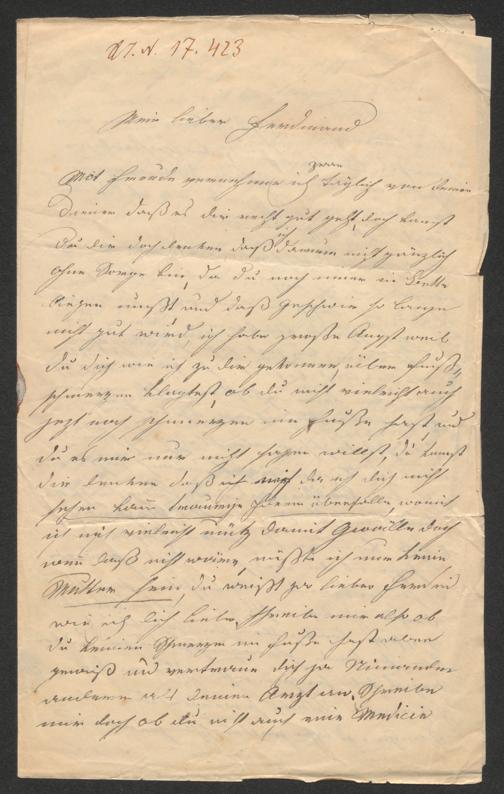 I. N. 17.423
Mein lieber Ferdinand
zwar
Mit Freude vernehme ich täglich von deinem
Diener daß es dir recht gut geht, doch kanst
ich
du dir doch denken daß darum nicht gänzlich
ohne Sorge bin, da du noch immer im Bette
liegen mußt und daß Geschwür so lange
nicht gut wird, ich habe große Angst weil
du dich wie ich zu dir gekomen, über Fuß-
schmerzen klagtest, ob du nicht vieleicht auch
jezt noch Schmerzen im Fuße hast und
du es mir nur nicht sagen willst, du kanst
dir denken daß ich mich da ich dich nicht
sehen kann traurige überfalle, womit
ich mich vieleicht unütz damit Quälle doch
wenn daß nicht wäre, müßte ich nur keine
Mutter sein, du weißt ja lieber Ferdi
wie ich dich liebe, schreibe mir also ob
du keinen Schmerzen im Fuße hast aber
gewiß und vertraue dich ja Nimanden
anderen als deinen Arzt an, Schreibe
mir doch ob du nicht auch eine Medicin